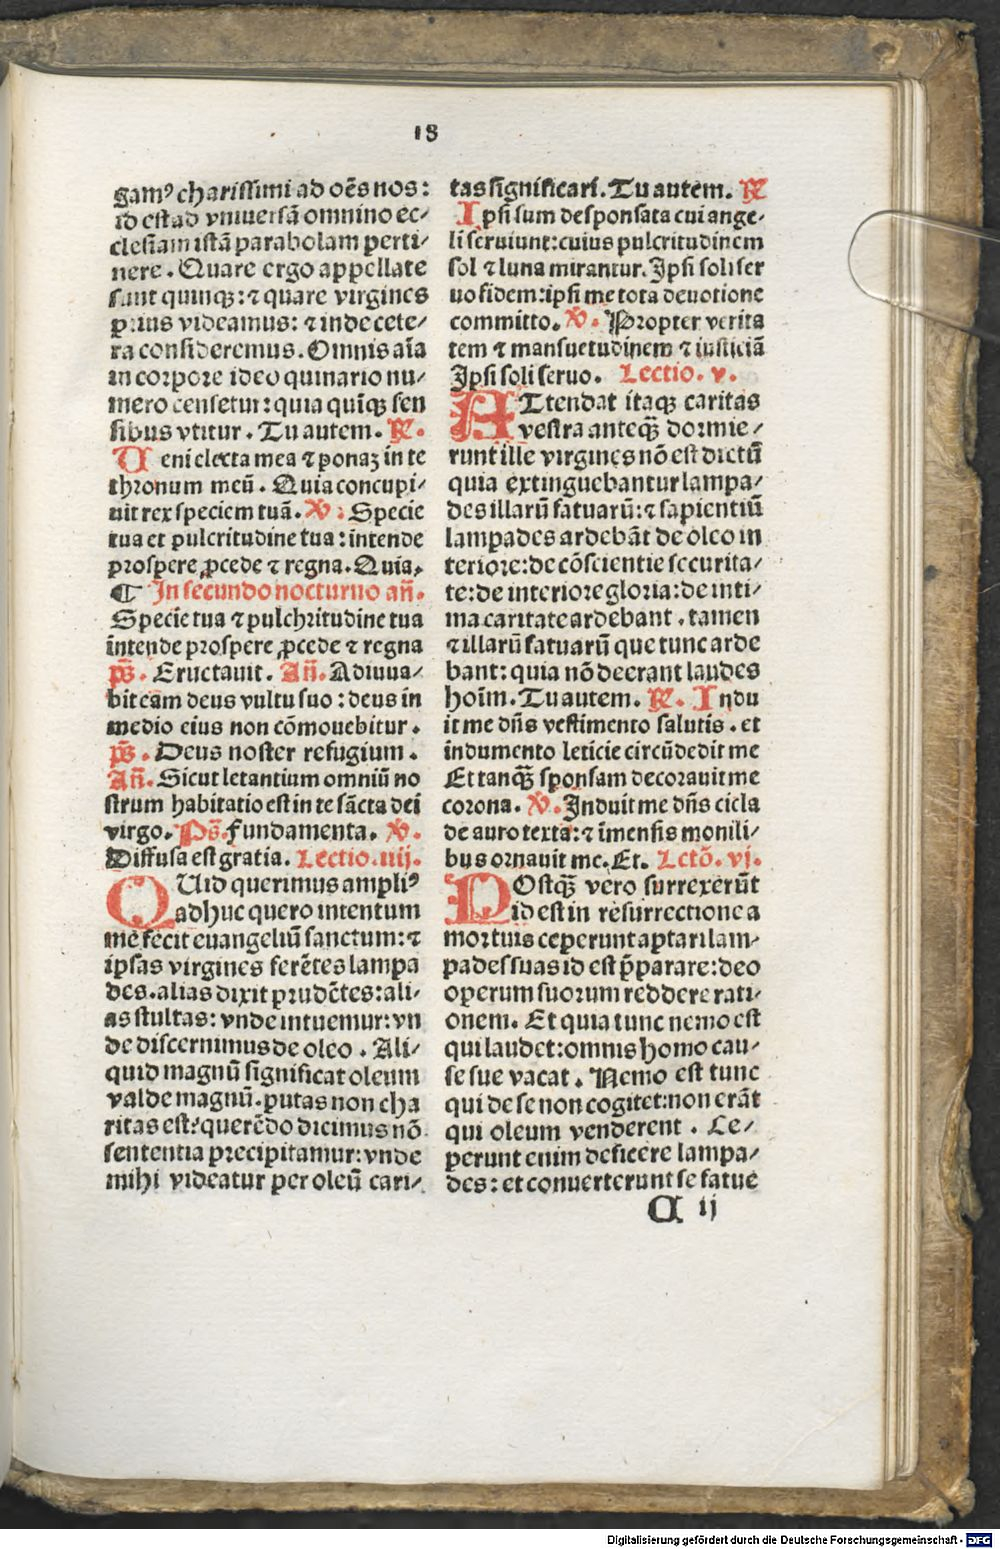 18
gamꝰ charissimi ad oēs nos:
id est ad vniuersā omnino ec⸗
clesiam istā parabolam perti⸗
nere. Quare ergo appellate
sunt quinqꝫ: ⁊ quare virgines
prius videamus: ⁊ inde cete⸗
ra consideremus. Omnis aīa
in corpore ideo quinario nu⸗
mero censetur: quia quīqꝫ sen
sibus vtitur. Tu autem. ℟.
Ueni electa mea ⁊ ponaꝫ in te
thronum meū. Quia concupi⸗
uit rex speciem tuā. ℣. Specie
tua et pulcritudine tua: intende
prospere ꝓcede ⁊ regna. Quia.
¶ In secundo nocturno añ.
Specie tua ⁊ pulchritudine tua
intende prospere ꝓcede ⁊ regna
pš. Eructauit. Añ. Adiuua⸗
bit eam deus vultu suo: deus in
medio eius non cōmouebitur.
pš. Deus noster refugium.
Añ. Sicut letantium omniū no
strum habitatio est in te sācta dei
virgo. Pš. Fundamenta. ℣.
Diffusa est gratia. Lectio. iiij.
QUid querimus ampliꝰ
adhuc quero intentum
me fecit euangeliū sanctum: ⁊
ipsas virgines ferētes lampa
des. alias dixit prudētes: ali⸗
as stultas: vnde intuemur: vn
de discernimus de oleo. Ali⸗
quid magnū significat oleum
valde magnū. putas non cha
ritas est? querēdo dicimus nō
sententia precipitamur: vnde
mihi videatur per oleū cari⸗
tas significari. Tu autem. ℟
Ipsi sum desponsata cui ange⸗
li seruiunt: cuius pulcritudinem
sol ⁊ luna mirantur. Ipsi soli ser
uo fidem: ipsi me tota deuotione
committo. ℣. Propter verita
tem ⁊ mansuetudinem ⁊ iusticiā
Ipsi soli seruo. Lectio. v.
ATtendat itaqꝫ caritas
vestra anteqꝫ̄ dormie⸗
runt ille virgines nō est dictū
quia extinguebantur lampa⸗
des illarū fatuarū: ⁊ sapientiū
lampades ardebāt de oleo in
teriore: de cōscientie securita⸗
te: de interiore gloria: de inti⸗
ma caritate ardebant. tamen
⁊ illarū fatuarū que tunc arde
bant: quia nō deerant laudes
hoīm. Tu autem. ℟. Indu
it me dñs vestimento salutis. et
indumento leticie circūdedit me
Et tanqꝫ̄ sponsam decorauit me
corona. ℣. Induit me dñs cicla
de auro texta: ⁊ īmensis monili⸗
bus ornauit me. Et. Lctō. vj.
POstqꝫ̄ vero surrexerūt
id est in resurrectione a
mortuis ceperunt aptari lam⸗
pades suas id est p̄parare: deo
operum suorum reddere rati⸗
onem. Et quia tunc nemo est
qui laudet: omnis homo cau⸗
se sue vacat. Nemo est tunc
qui de se non cogitet: non erāt
qui oleum venderent. Ce⸗
perunt enim deficere lampa⸗
des: et conuerterunt se fatue
a ij
Digitalisierung gefördert durch die Deutsche Forschungsgemeinschaft - DFG